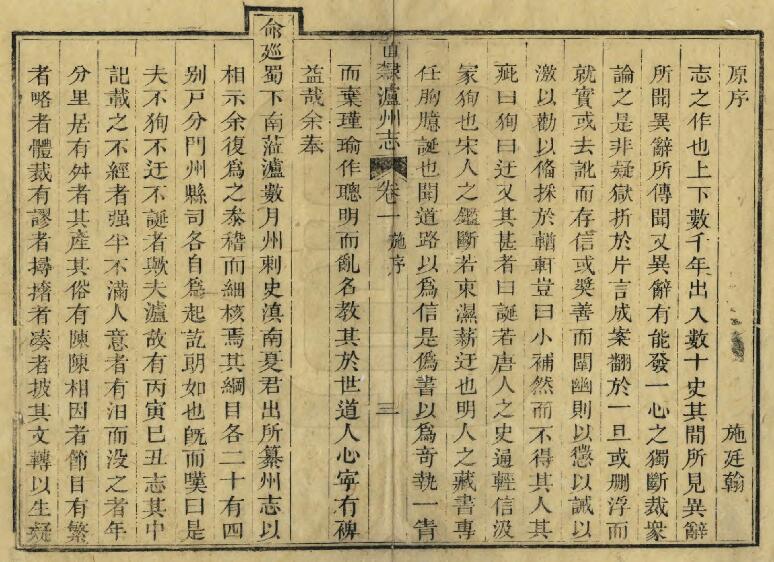 原序
施廷翰
志之作也上下數千年出入數十史其間所見異辭
所聞異辭所傳聞又異辭有能發一心之獨斷裁衆
論之是非疑獄折於片言成案翻於一旦或刪浮而
就實或去訛而存信或奬善而闡幽則以懲以誡以
激以勸以俻採於輶軒豈曰小補然而不得其人其
疵曰狥曰迂又其甚者曰誕若唐人之史過輕信汲
冢狥也宋人之鑑斷若束濕薪迂也明人之藏書專
任胸臆誕也聞道路以爲信是僞書以爲竒執一眚
直隸瀘州志 卷一 施序 三
而棄瑾瑜作聰明而亂名教其於世道人心寧有碑
益哉余奉
命廵蜀下南蒞瀘數月州刺史滇南夏君出所纂州志以
相示余復爲之叅稽而細核焉其綱目各二十有四
别戸分門州縣司各自爲起訖朗如也旣而嘆曰是
夫不狥不迂不誕者歟夫瀘故有丙寅巳丑志其中
記載之不經者强半不滿人意者有汨而没之者年
分里居有舛者其產其俗有陳陳相因者節目有繁
者略者體裁有謬者撏撦者湊者披其文轉以生疑